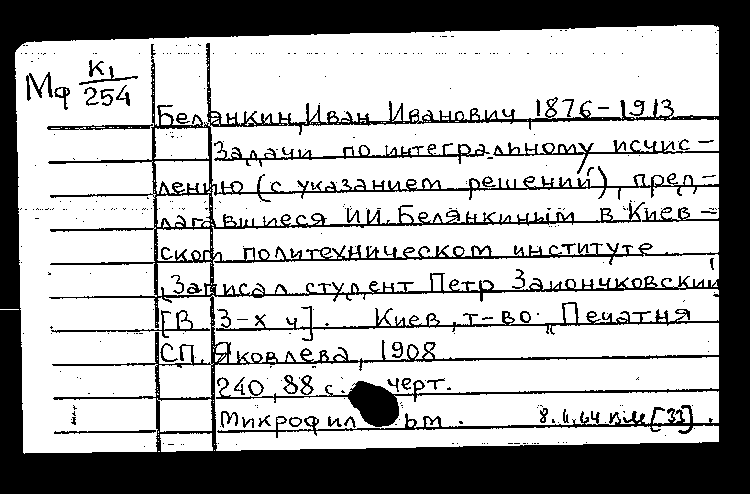 Мф К1/254
Белянкин, Иван Иванович, 1876-1913
Задачи по интегральному исчис-
лению (с указанием решений), пред-
лагавшиеся И.И. Белянкиным в Киев-
ском политехническом институте.
Записал студент Петр Заиончковский
[В 3-х ч]. Киев, т-во „Печатня
С.П. Яковлева, 1908
240, 88 с. черт.
Микрофил ьм.